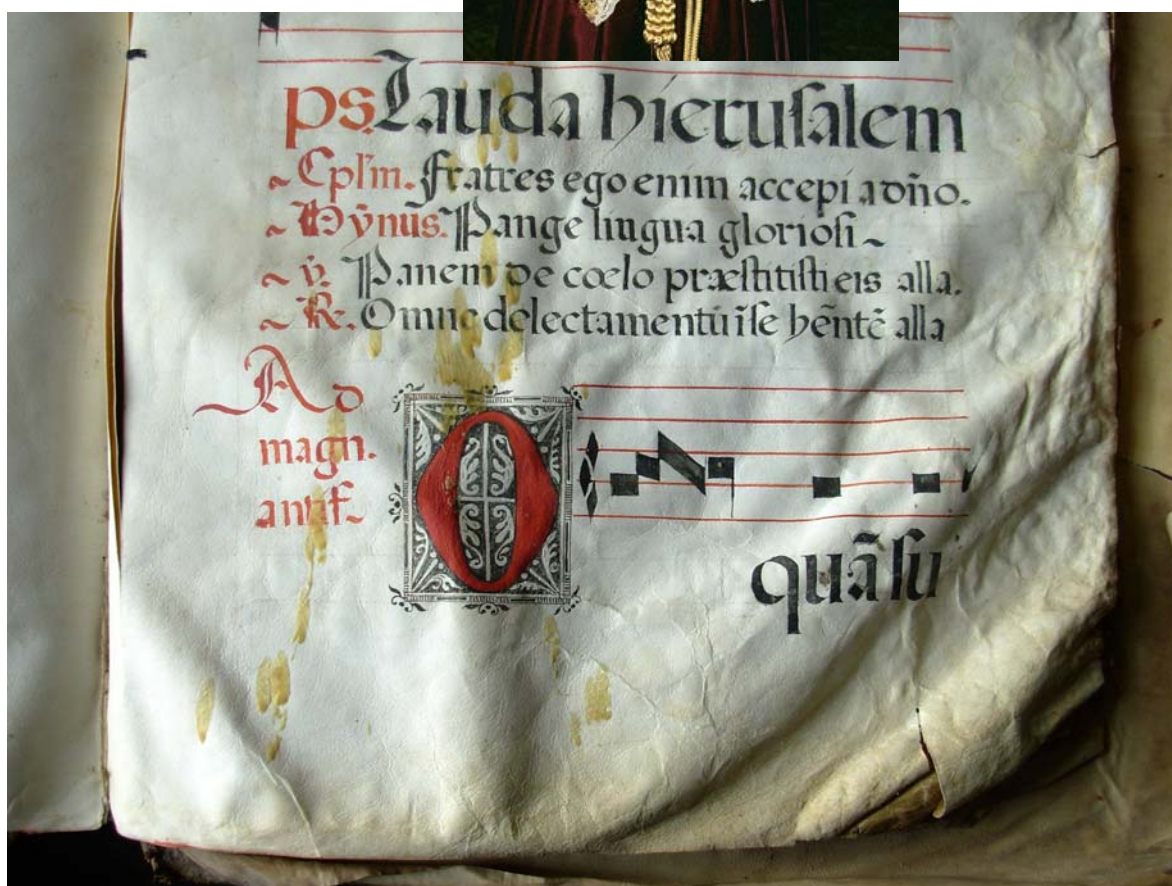 ps. Lauda hierusalem
~ Cplm. Fratres ego enim accepi a dño.
~ Hỹnus. Pange lingua gloriosi ~
~ ṽ. Panem de cœlo præstitisti eis alla.
~ R. Omne delectamentũ ĩ se hẽntẽ alla
Ad
magn.
antif~
O quã su